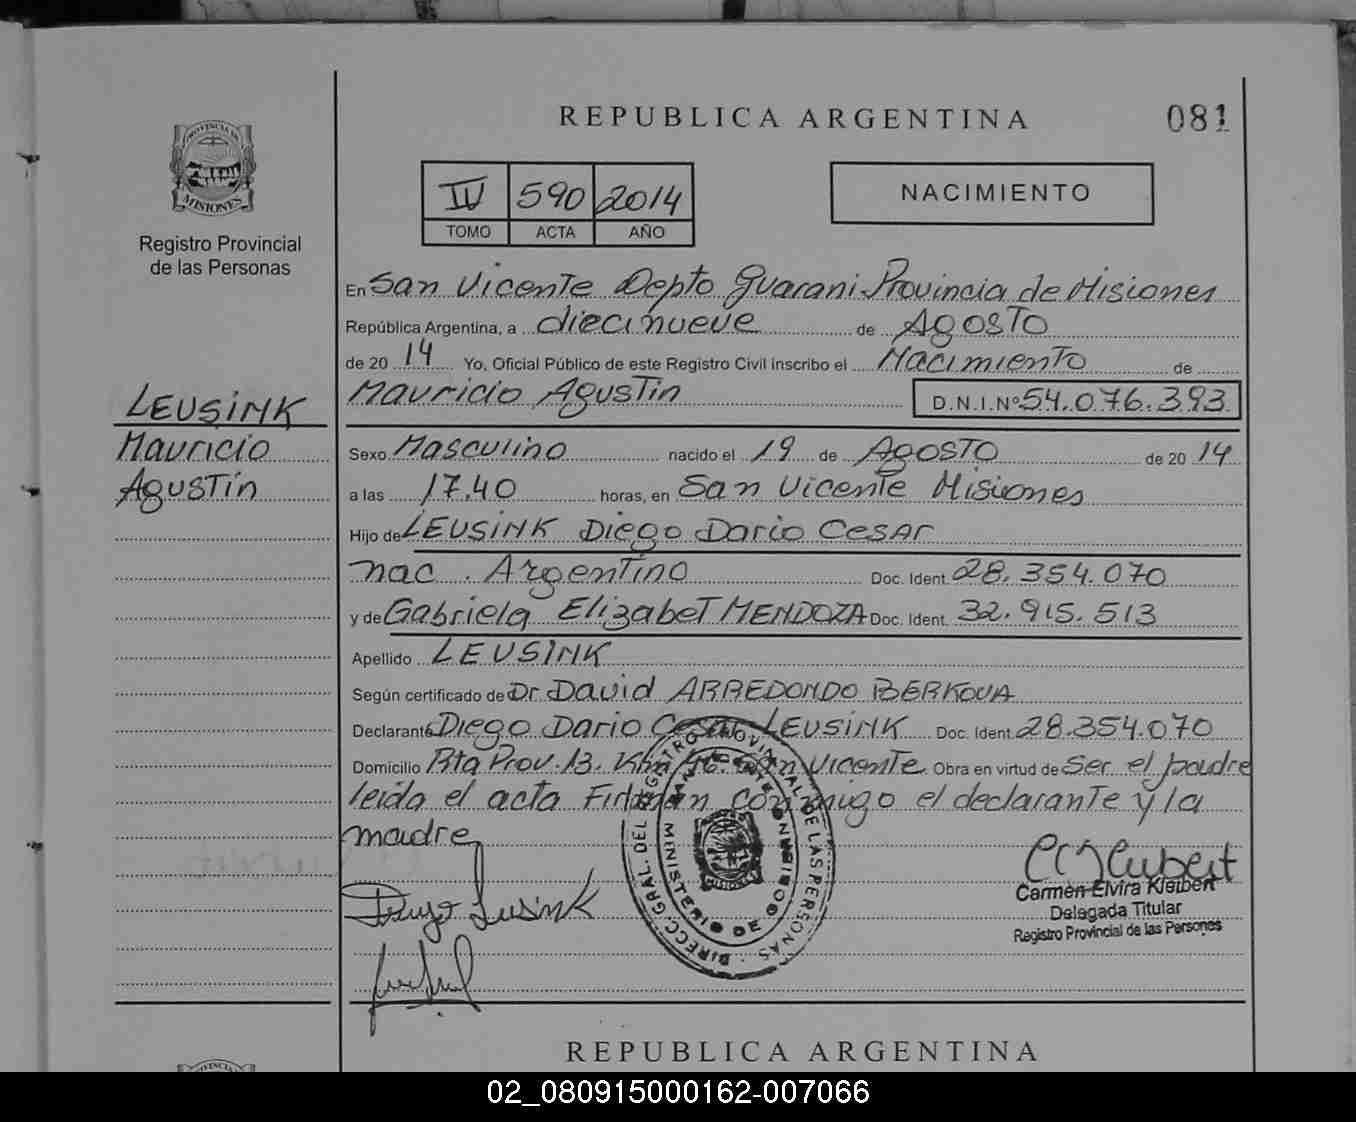 REPUBLICA ARGENTINA
081
PROVINCIA DE
MISIONES
Registro Provincial
de las Personas
IV 590 2014
TOMO ACTA AÑO
NACIMIENTO
En San Vicente Depto Guarani Provincia de Misiones
República Argentina, a diecinueve de Agosto
de 20 14 Yo, Oficial Público de este Registro Civil inscribo el Nacimiento de
Mauricio Agustin D.N.I.Nº 54.076.393
LEUSINK
Mauricio
Agustin
Sexo Masculino nacido el 19 de Agosto de 20 14
a las 17.40 horas, en San Vicente Misiones
Hijo de LEUSINK Diego Dario Cesar
nac. Argentino Doc. Ident. 28.354.070
y de Gabriela Elizabet MENDOZA Doc. Ident. 32.915.513
Apellido LEUSINK
Según certificado de Dr. David ARREDONDO BERKOVA
Declarante Diego Dario Cesar LEUSINK Doc. Ident. 28.354.070
Domicilio Rta Prov. 13. Km San Vicente Obra en virtud de Ser el padre
leida el acta Firman conmigo el declarante y la
madre
DIRECC. GRAL. DEL REGISTRO PROVINCIAL DE LAS PERSONAS
SAN VICENTE
MINISTERIO DE GOBIERNO
Carmen Elvira Kleibert
Delegada Titular
Registro Provincial de las Personas
REPUBLICA ARGENTINA
02_080915000162-007066